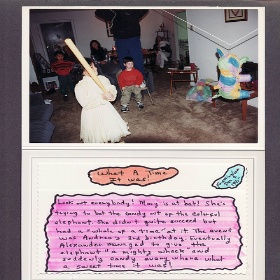 What A Time
It Was!
Look out everybody! Mary is at bat! She's
trying to bat the candy out of the colorful
elephant. She didn't quite succeed but
had a "whale of a time" at it. The event
was Andrea's 3rd birthday. Eventually
Alexander managed to give the
elephant a mighty whack and
suddenly candy everywhere what
a sweet time it was!